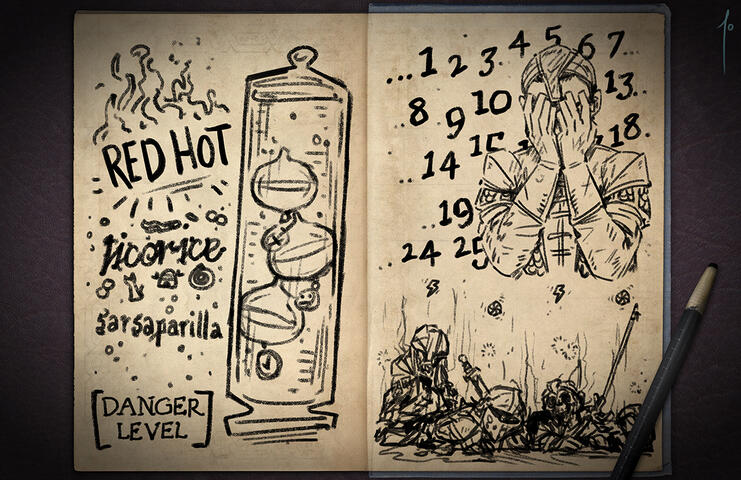 RED HOT
licorice
sarsaparilla
[DANGER
LEVEL]
...1 2 3. 4 5 6 7..
..8 9 10 13.
.. 14 15 18.
..19
..24 25